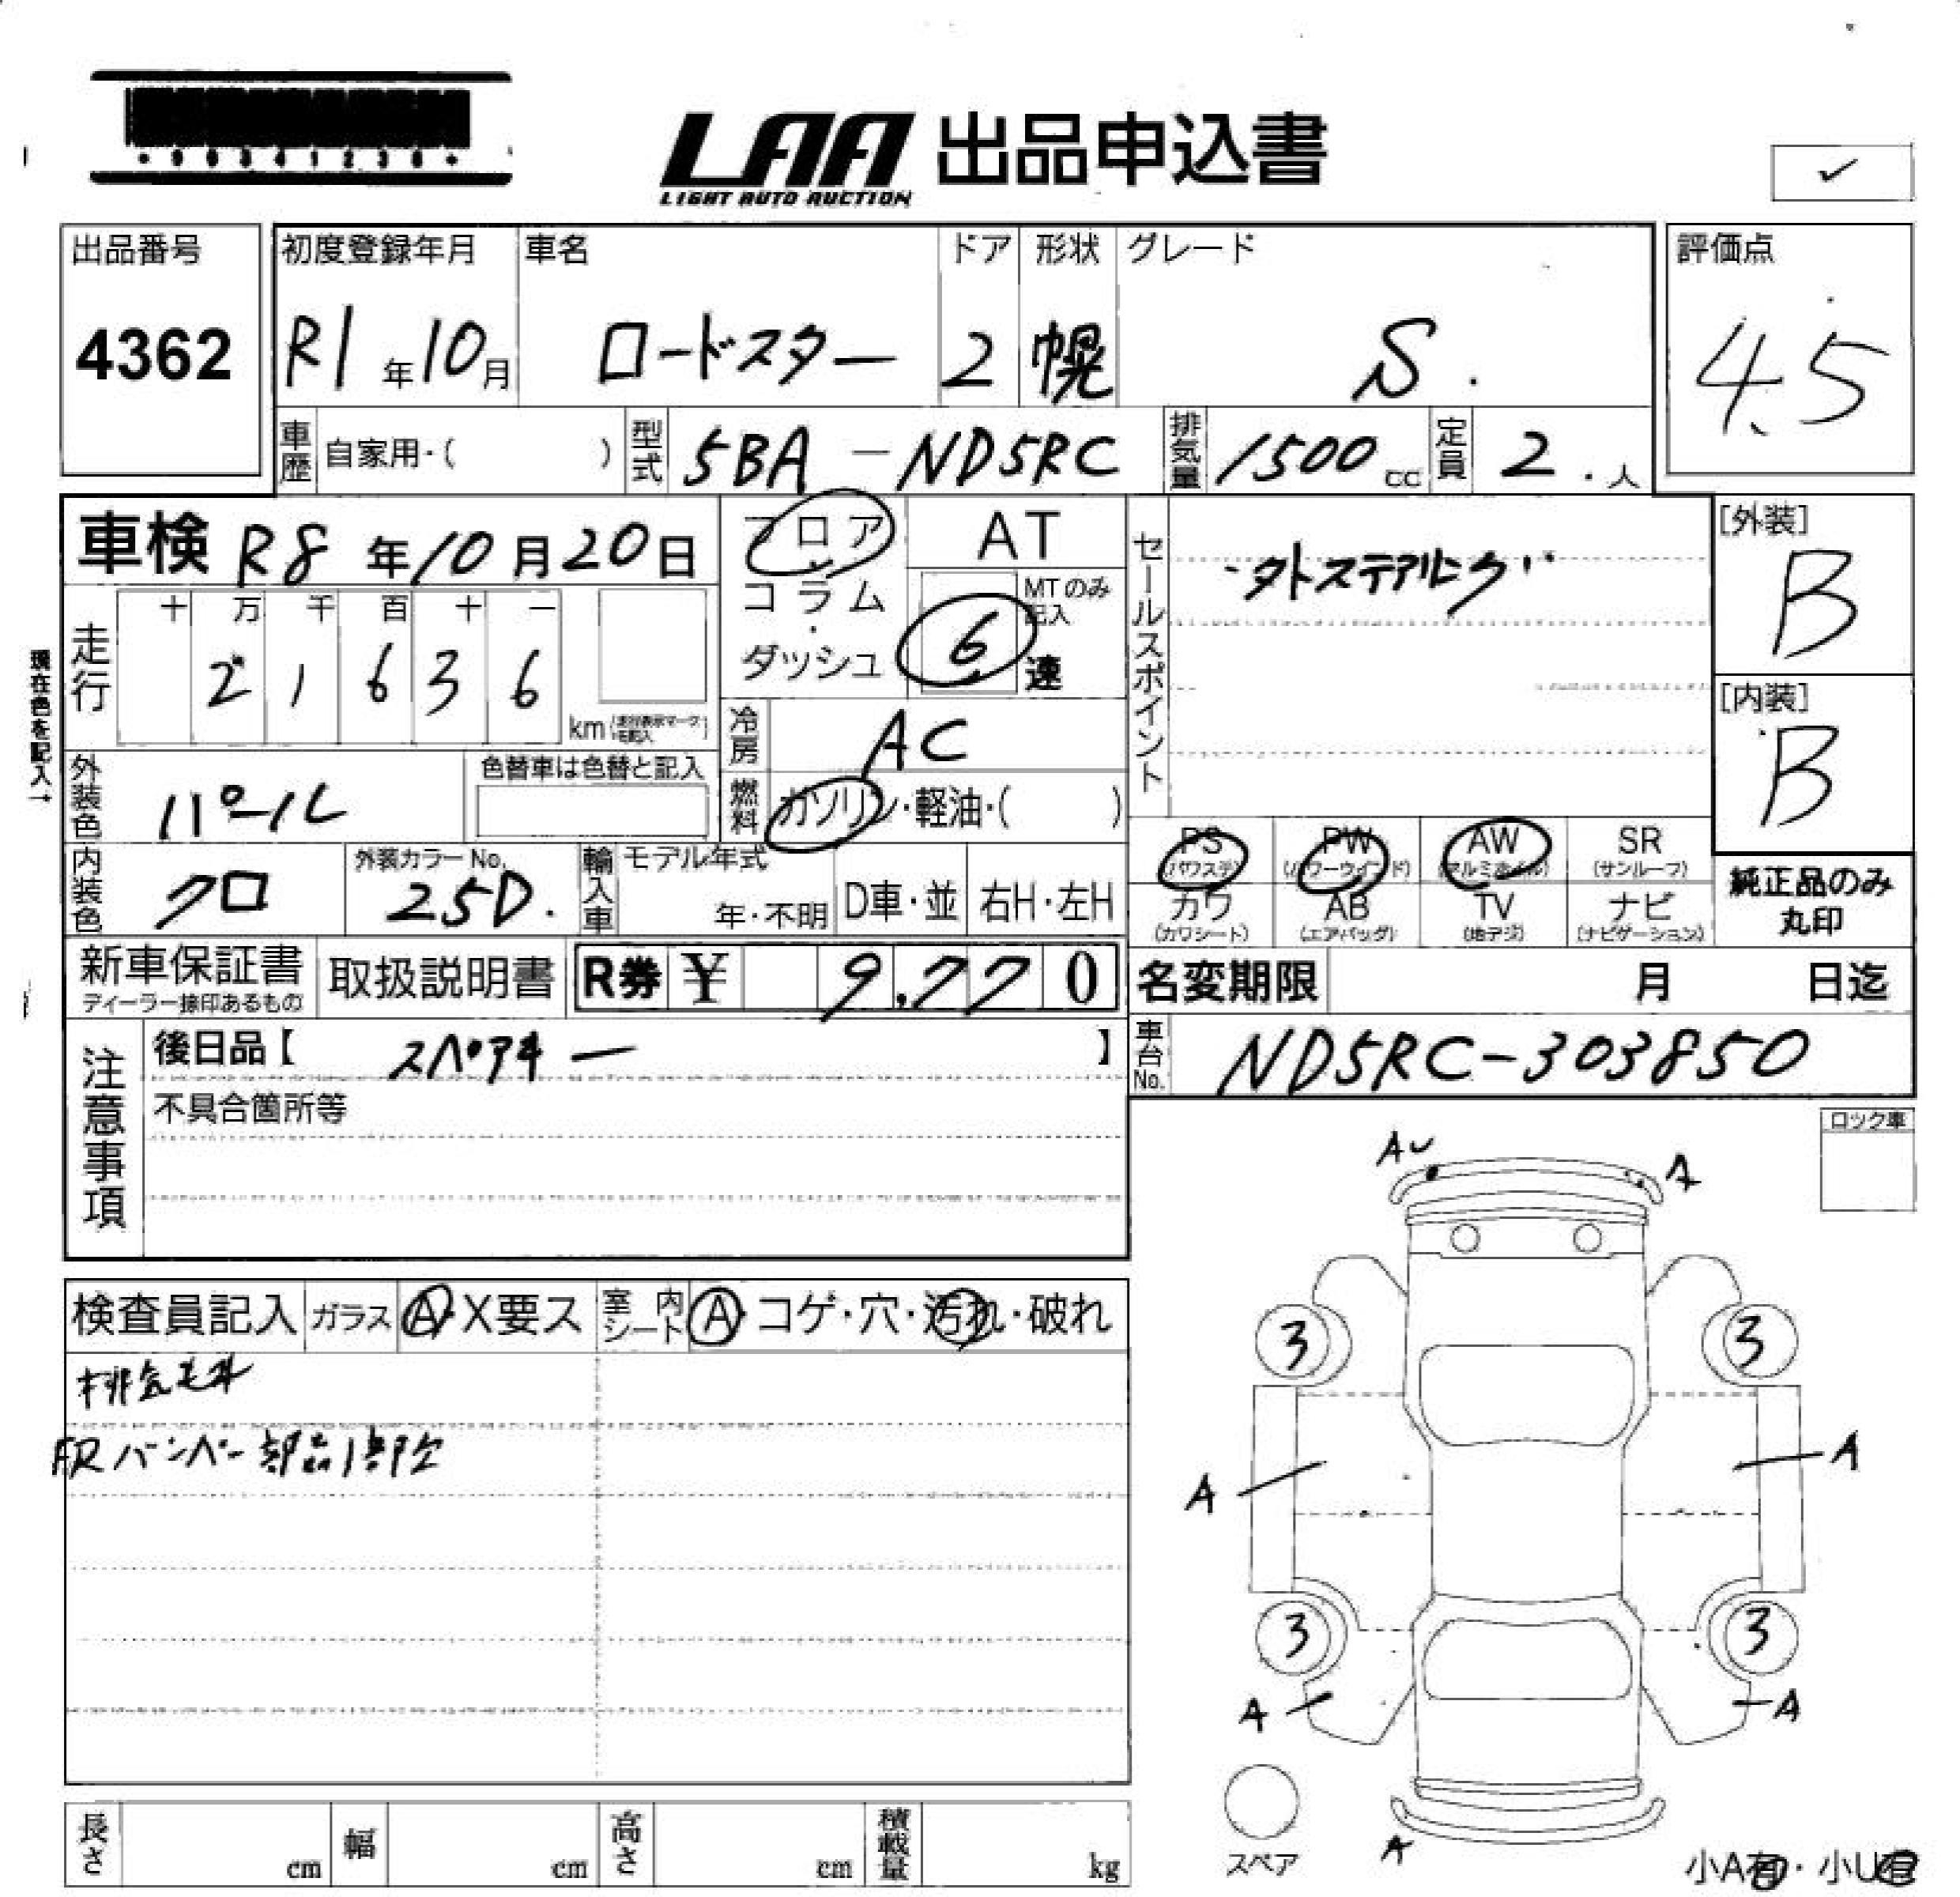 LAA 出品申込書
LIGHT AUTO AUCTION
✓
出品番号
4362
初度登録年月 車名 ドア 形状 グレード
R1年10月 ロードスター 2 幌 S.
評価点
4.5
車歴 自家用・( ) 型式 5BA-ND5RC 排気量 1500cc 定員 2.人
車検 R8年10月20日
フロア・コラム・ダッシュ
AT
MTのみ記入
6速
走行
十 万 千 百 十 一
2 1 6 3 6
km
現在色を記入→
外装色 パール
色替車は色替と記入
内装色 クロ
外装カラーNo. 25D.
冷房 AC
燃料 ガソリン・軽油・( )
輸入車 モデル年式
年・不明 D車・並 右H・左H
セールスポイント
[外装]
B
[内装]
B
PS (パワステ) PW (パワーウインド) AW (アルミホイル) SR (サンルーフ)
カワ (カワシート) AB (エアバッグ) TV (地デジ) ナビ (ナビゲーション)
純正品のみ
丸印
新車保証書
ディーラー捺印あるもの
取扱説明書
R券 ¥ 9,770
名変期限 月 日迄
車台No. ND5RC-303850
注意事項
後日品【 スペアキー 】
不具合箇所等
ロック車
検査員記入 ガラス A・X要ス 室内シート A・コゲ・穴・汚れ・破れ
FRバンパー部品1部欠
AU A
3 3
A A
3 3
A A
A
スペア
小A有・小U有
長さ cm 幅 cm 高さ cm 積載量 kg